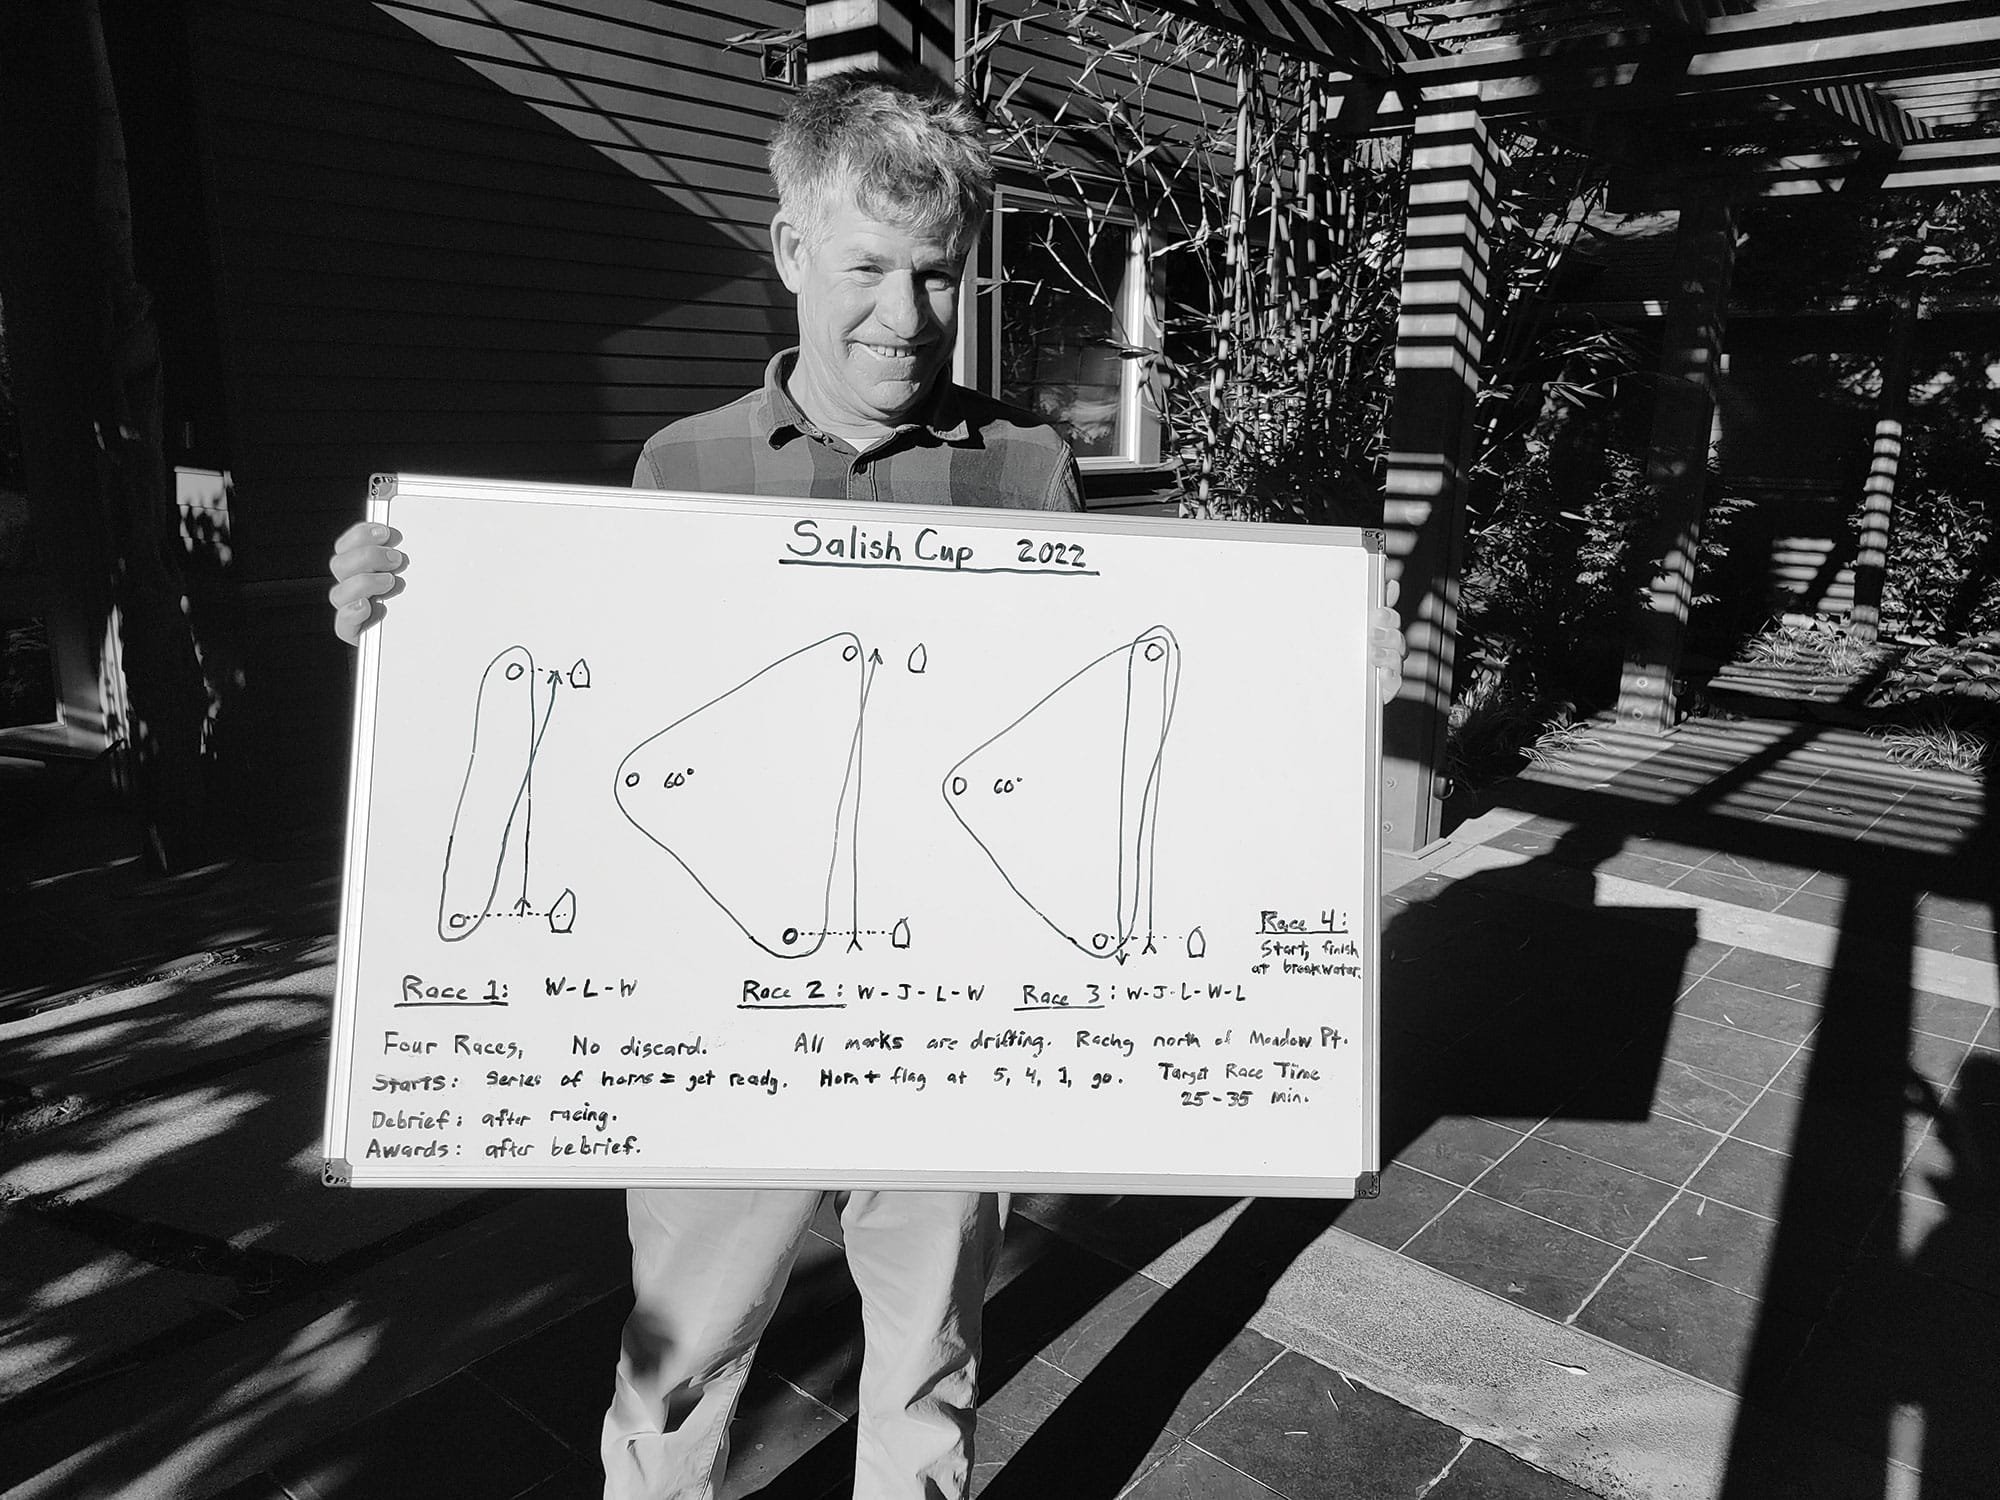 Salish Cup 2022
60°
60°
Race 4:
Start, finish
at breakwater.
Race 1: W-L-W
Race 2: W-J-L-W
Race 3: W-J-L-W-L
Four Races, No discard. All marks are drifting. Racing north of Meadow Pt.
Starts: Series of horns = get ready. Horn + flag at 5, 4, 1, go. Target Race Time
25-35 min.
Debrief: after racing.
Awards: after bebrief.